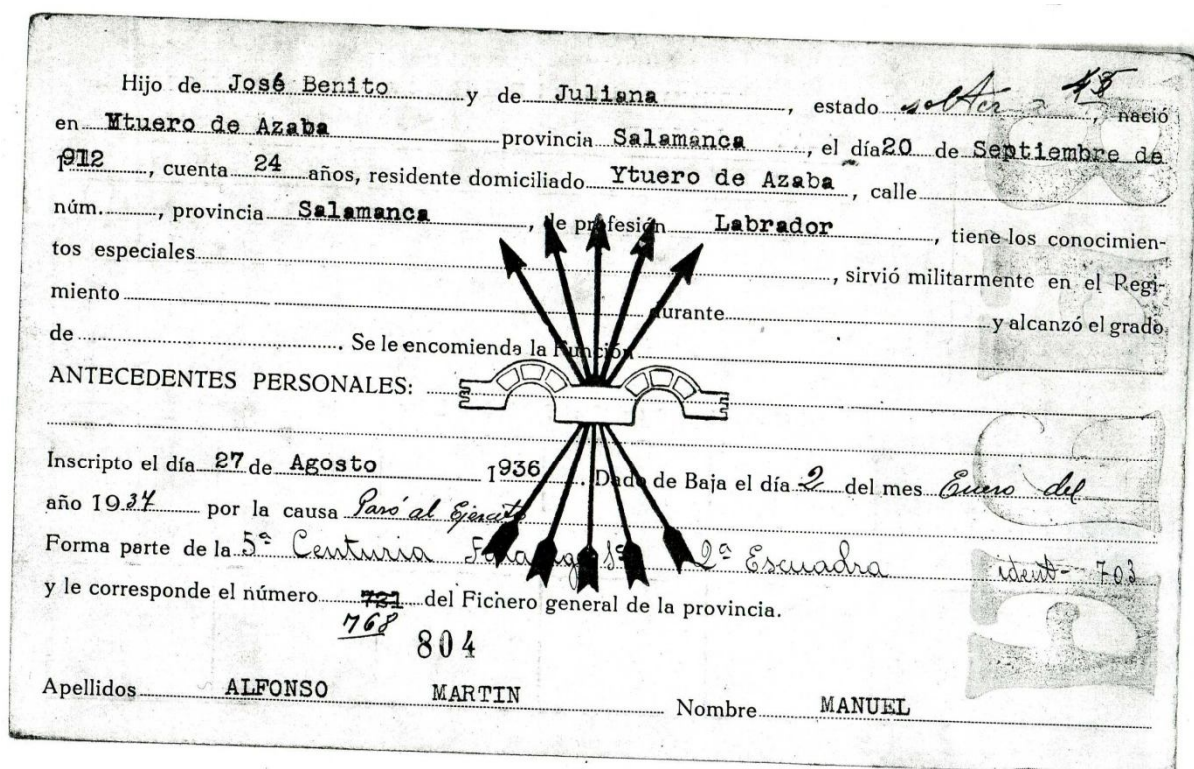 45
Hijo de José Benito y de Juliana, estado soltero, nació
en Ytuero de Azaba provincia Salamanca, el día 20 de Septiembre de
1912, cuenta 24 años, residente domiciliado Ytuero de Azaba, calle
núm. , provincia Salamanca, de profesión Labrador, tiene los conocimien-
tos especiales , sirvió militarmente en el Regi-
miento durante y alcanzó el grado
de . Se le encomienda la Función
ANTECEDENTES PERSONALES:
Inscripto el día 27 de Agosto 1936. Dado de Baja el día 2 del mes Enero del
año 1937 por la causa Pasó al Ejercito
Forma parte de la 5ª Centuria Falange 1ª 2ª Escuadra ident- 703
y le corresponde el número 721 del Fichero general de la provincia.
768
804
Apellidos ALFONSO MARTIN Nombre MANUEL